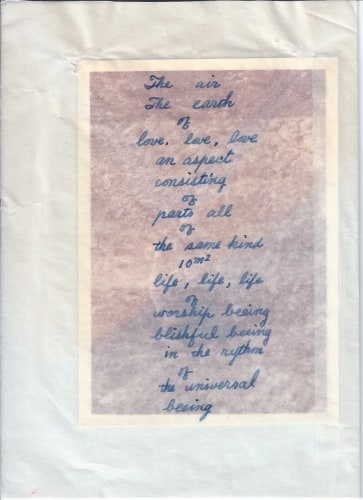 The air
The earth
of
love, love, love
an aspect
consisting
of
parts all
of
the same kind
10 m²
life, life, life
of
worship beeing
blishful beeing
in the rythm
of
the universal
beeing